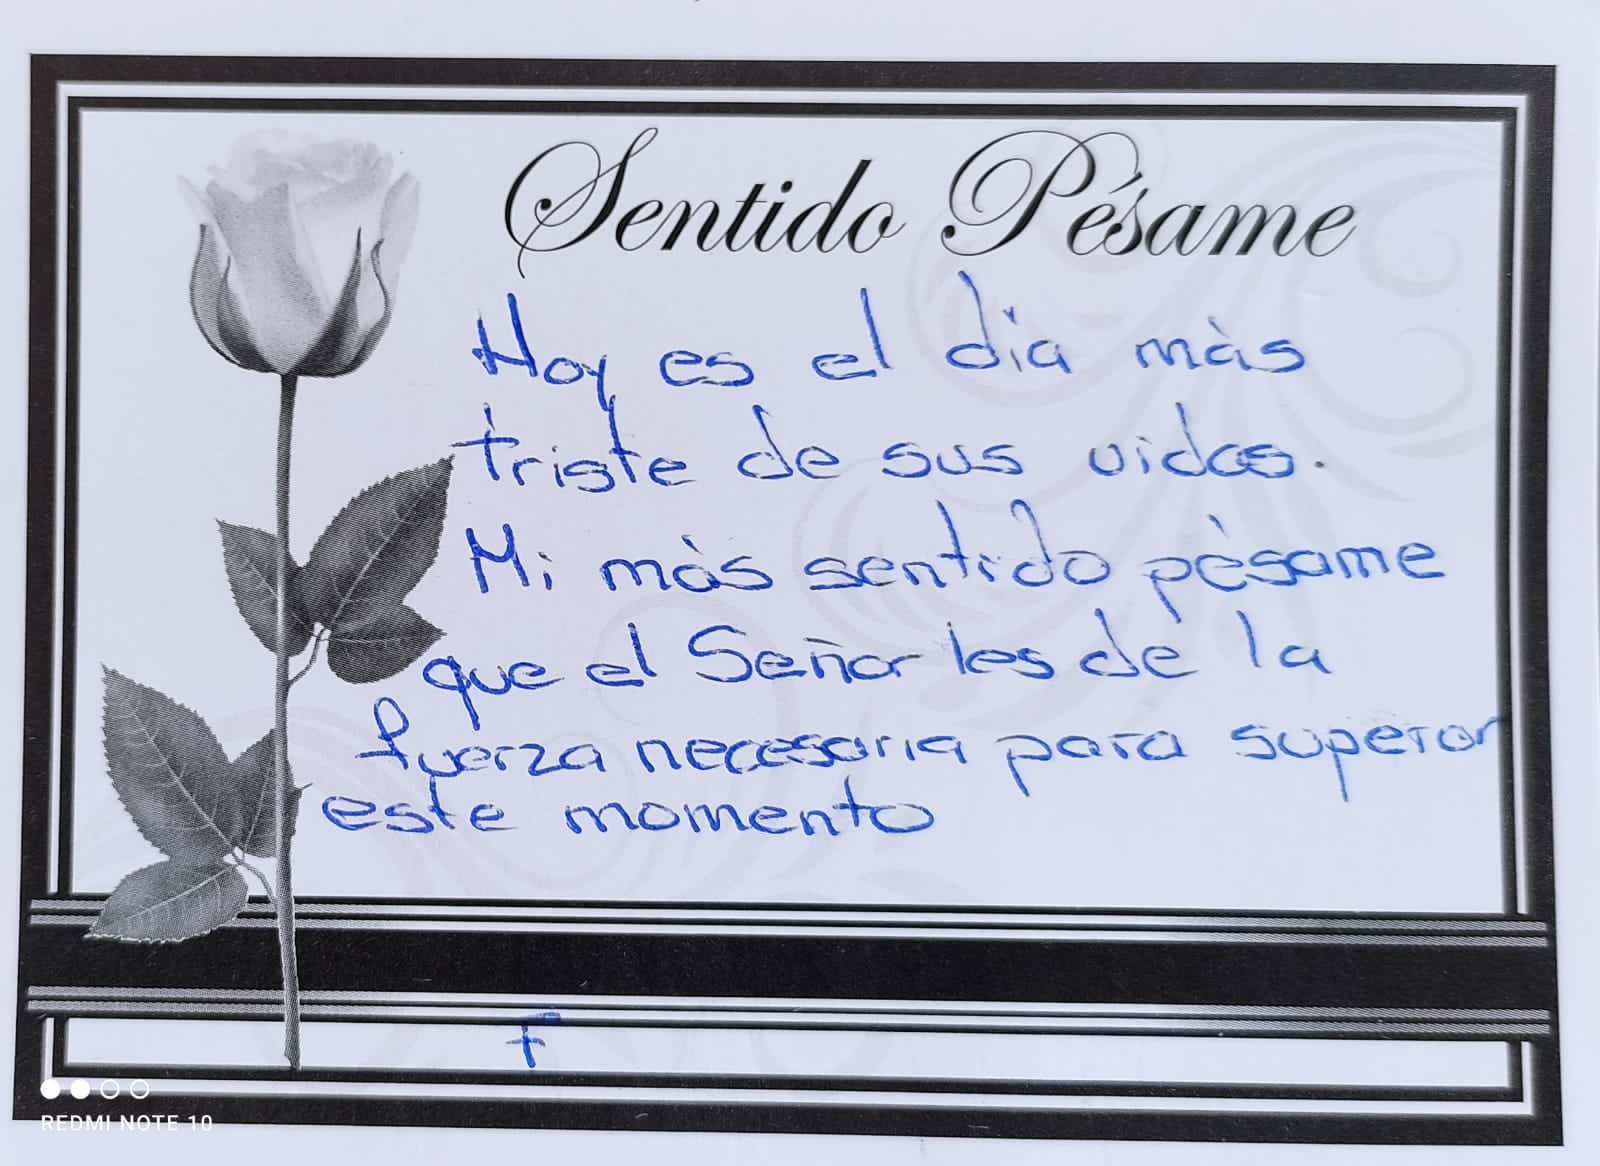 Sentido Pésame
Hoy es el día màs
triste de sus vidas.
Mi màs sentido pèsame
que el Señor les de la
fuerza necesaria para superar
este momento
F
REDMI NOTE 10